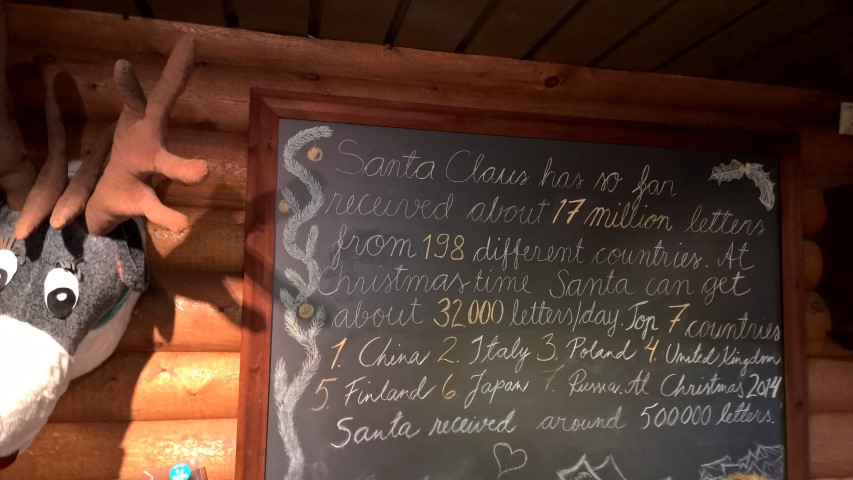 Santa Claus has so far
received about 17 million letters
from 198 different countries. At
Christmas time Santa can get
about 32 000 letters/day. Top 7 countries
1. China 2. Italy 3. Poland 4. United Kingdom
5. Finland 6. Japan 7. Russia. At Christmas 2014
Santa received around 500 000 letters.